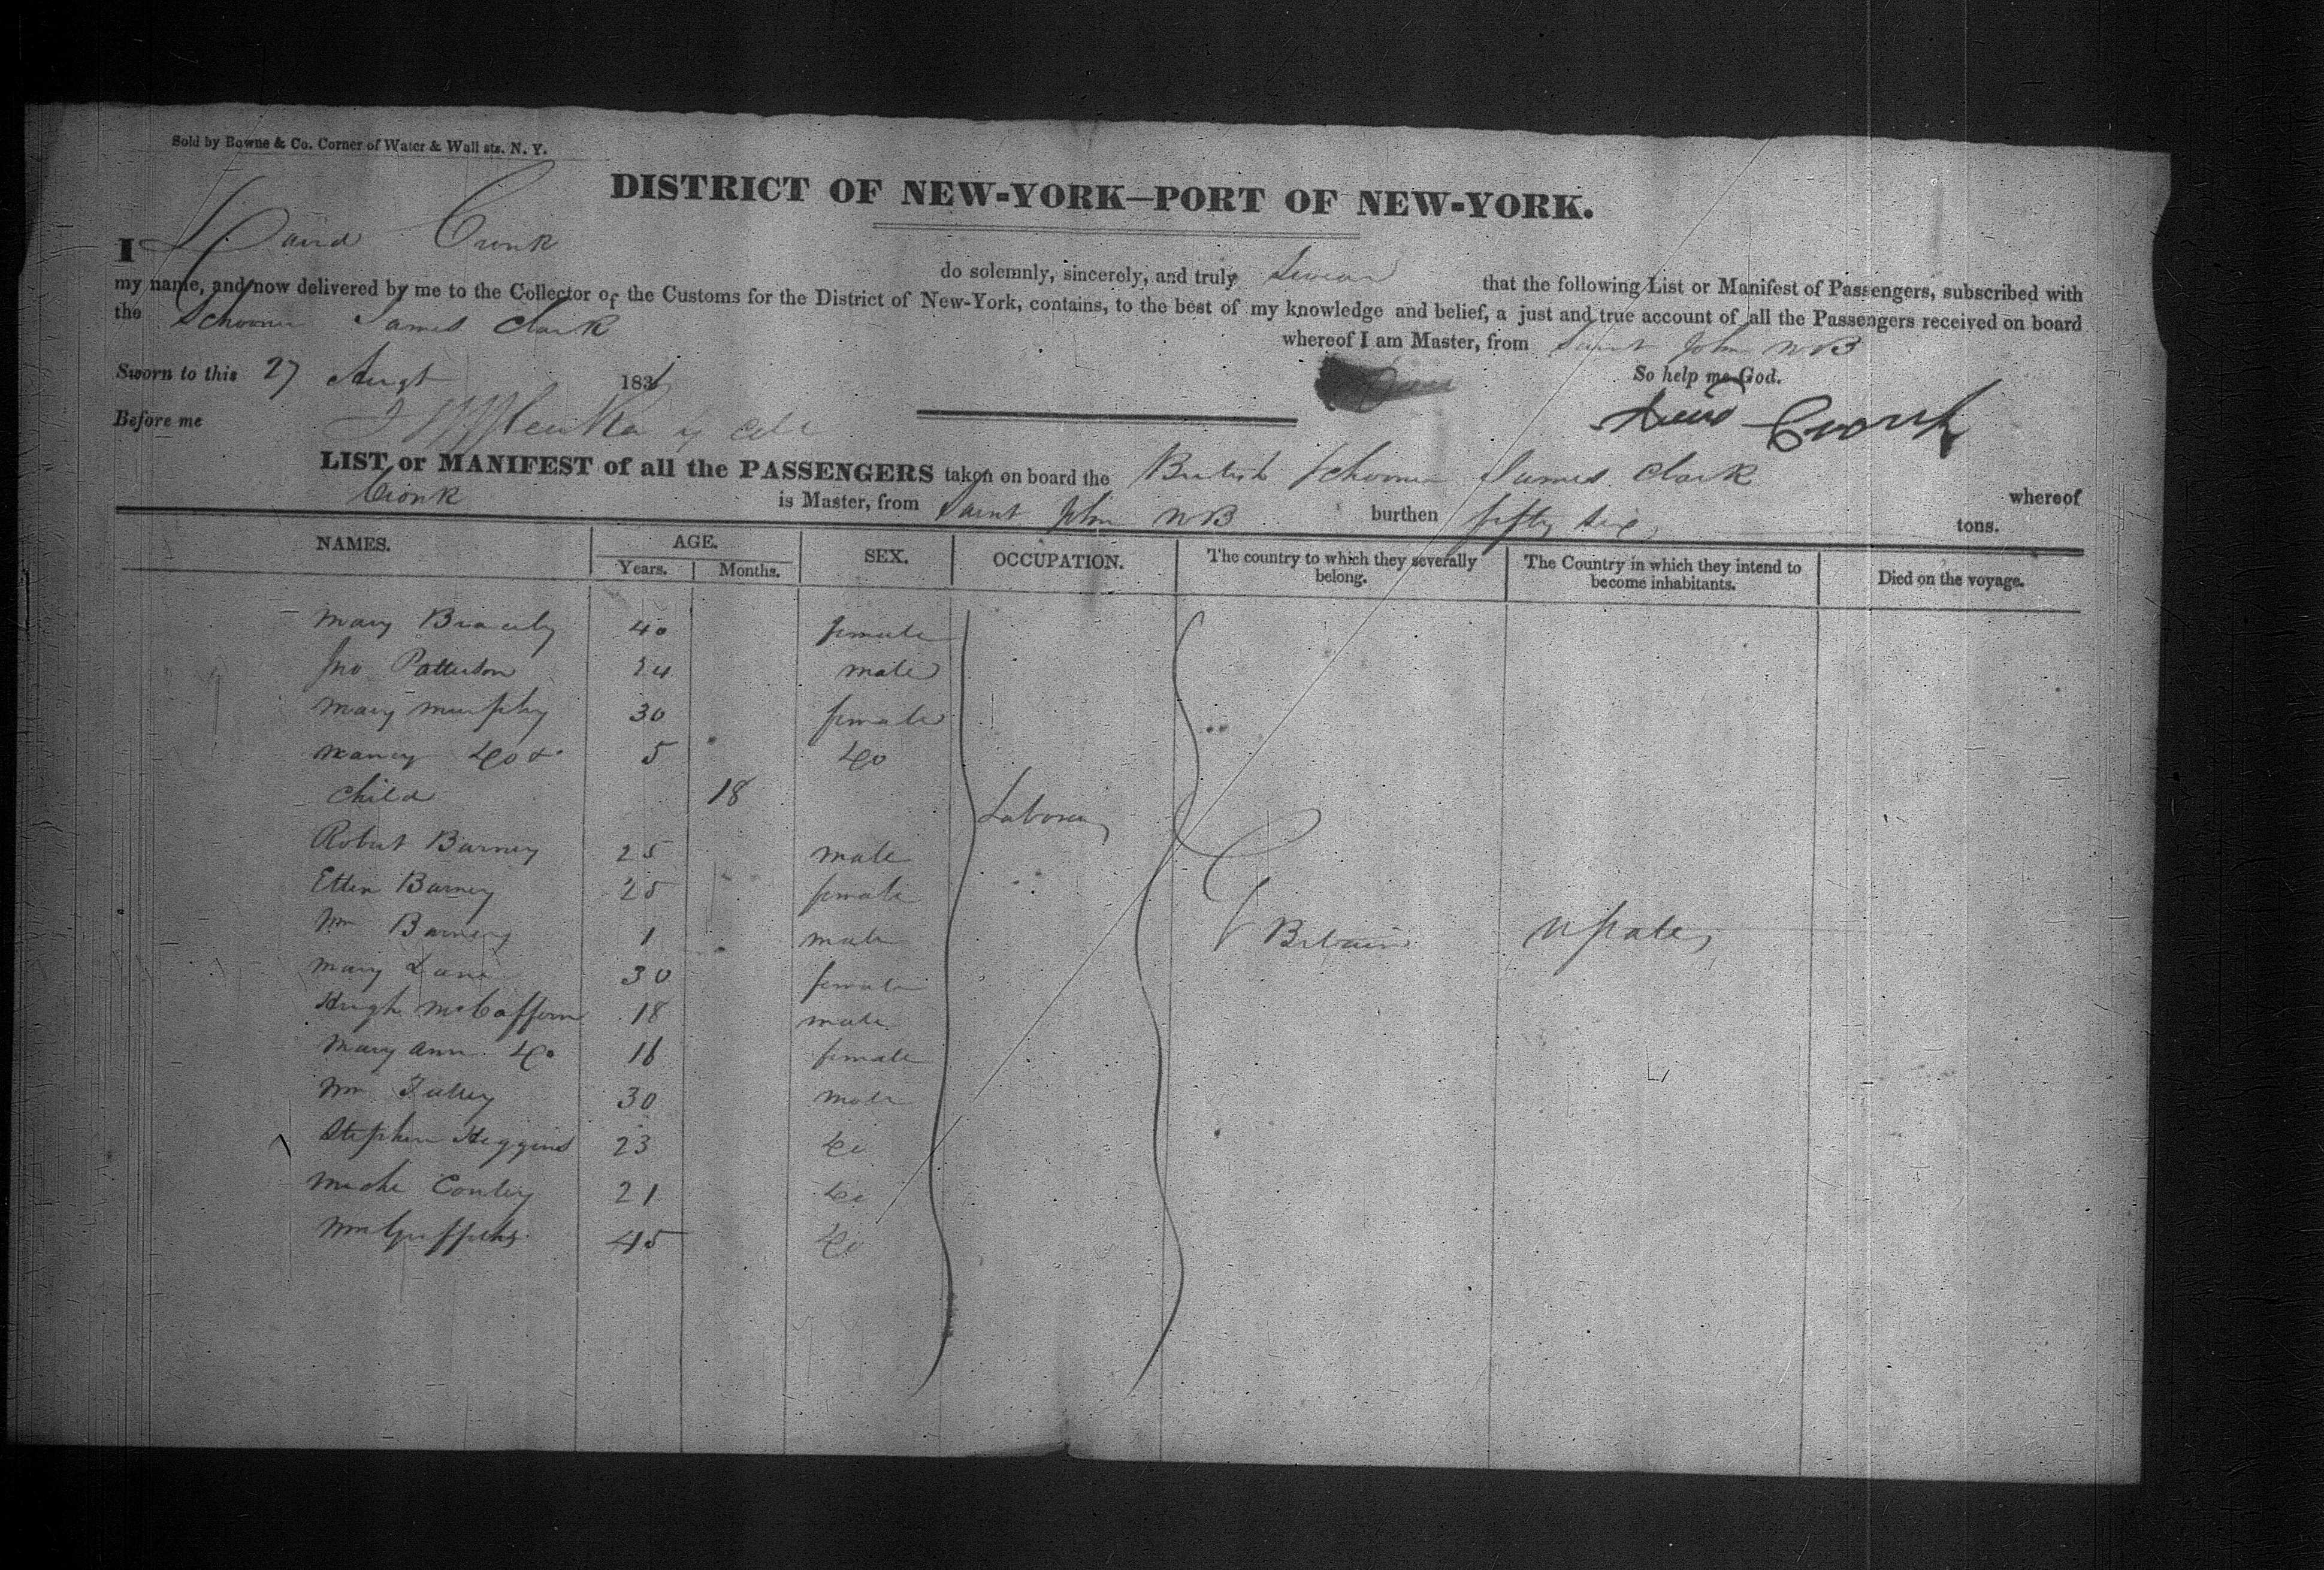 Sold by Bowne & Co. Corner of Water & Wall sts. N. Y.
DISTRICT OF NEW-YORK—PORT OF NEW-YORK.
I David Cronk do solemnly, sincerely, and truly Swear that the following List or Manifest of Passengers, subscribed with
my name, and now delivered by me to the Collector of the Customs for the District of New-York, contains, to the best of my knowledge and belief, a just and true account of all the Passengers received on board
the Schooner James Clark whereof I am Master, from Saint John NB
Sworn to this 27 Augt 183 So help me God.
Before me David Cronk
LIST or MANIFEST of all the PASSENGERS taken on board the British Schooner James Clark whereof
Cronk is Master, from Saint John NB burthen fifty six tons.
NAMES. AGE. SEX. OCCUPATION. The country to which they severally belong. The Country in which they intend to become inhabitants. Died on the voyage.
Years. Months.
Mary 40 female
Jno Patterson 24 male
Mary Murphy 30 female
Nancy do & 5 do
Child 18
Labourers
Robert Barney 25 male
Ellen Barney 25 female
Wm Barney 1 male
G Britain U States
Mary Lane 30 female
Hugh McCaffern 18 male
Mary Ann do 16 female
Wm 30 male
Stephen Higgins 23 do
Miche Conley 21 do
Wm Griffiths 45 do